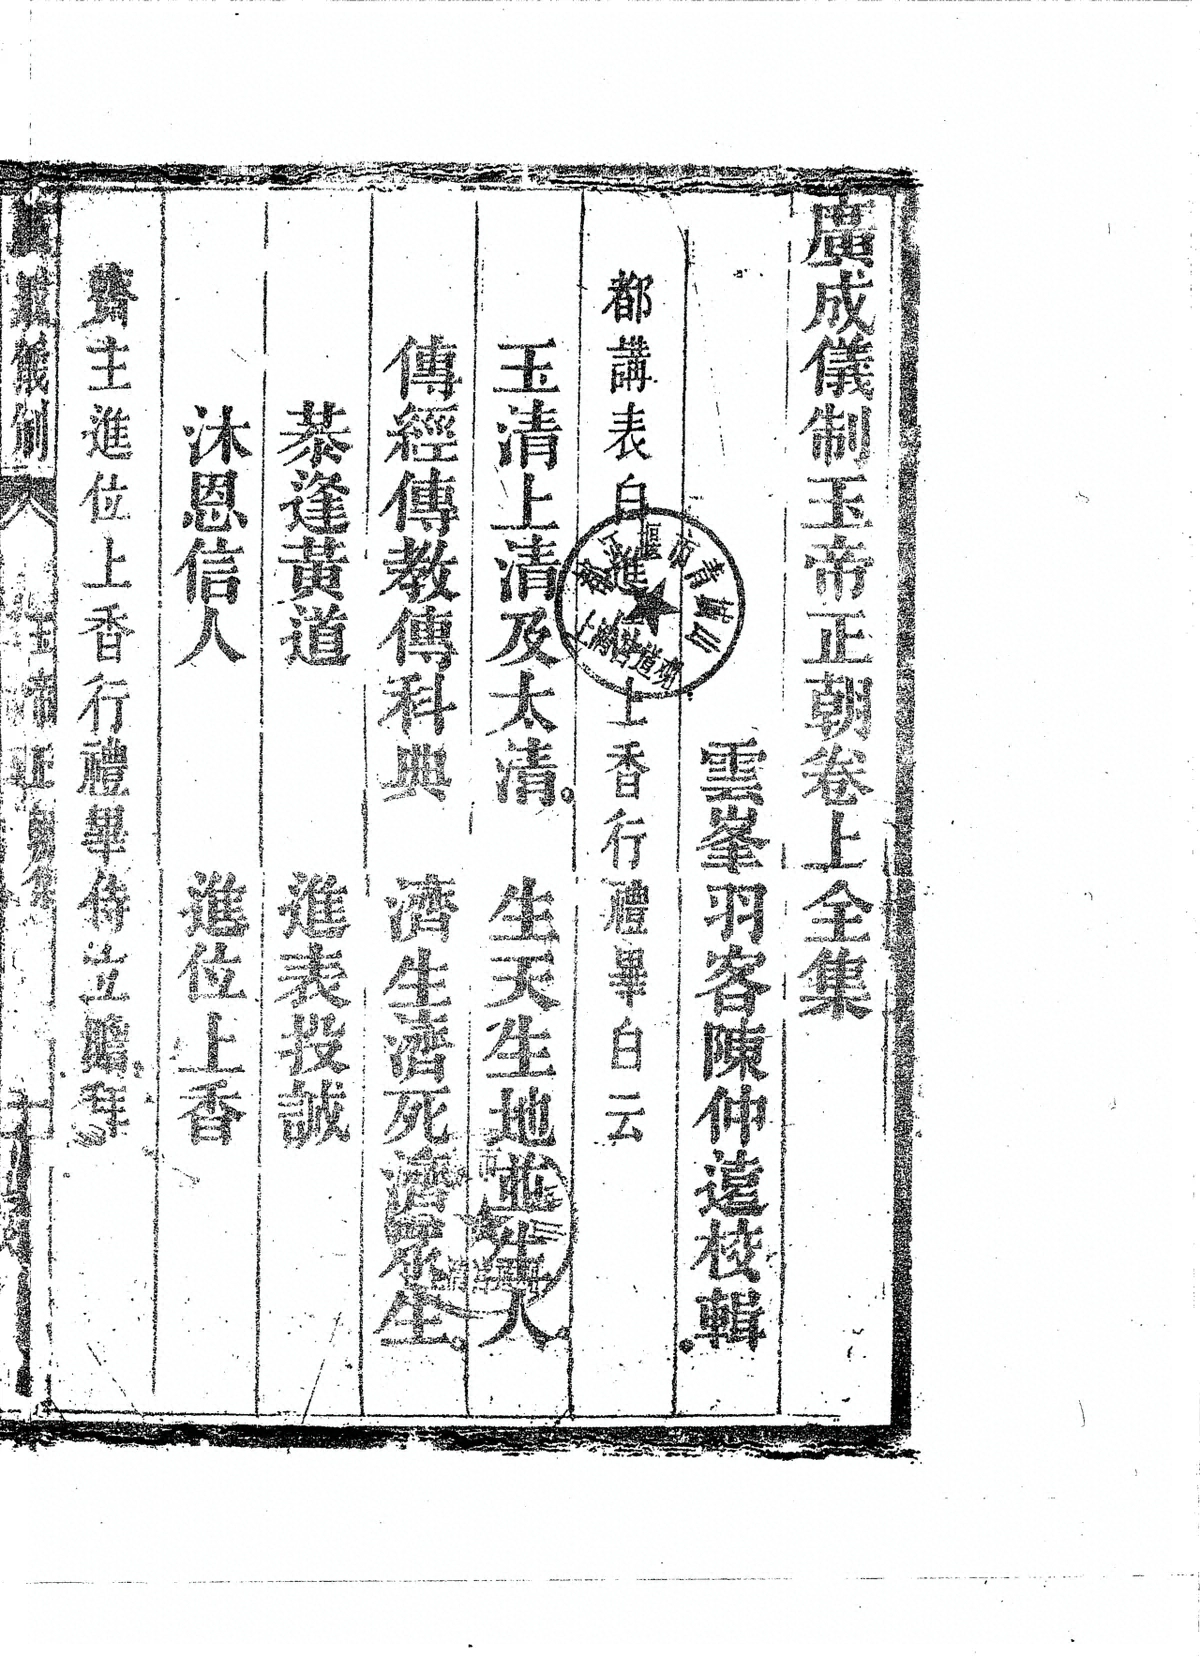 廣成儀制玉帝正朝卷上全集
雲峯羽客陳仲遠校輯
都講表白進位上香行禮畢白云
玉清上清及太清 生天生地並生人
傳經傳教傳科典 濟生濟死濟眾生
恭逢黃道 進表投誠
沐恩信人 進位上香
齋主進位上香行禮畢侍立瞻拜
成儀制 玉帝正朝全集